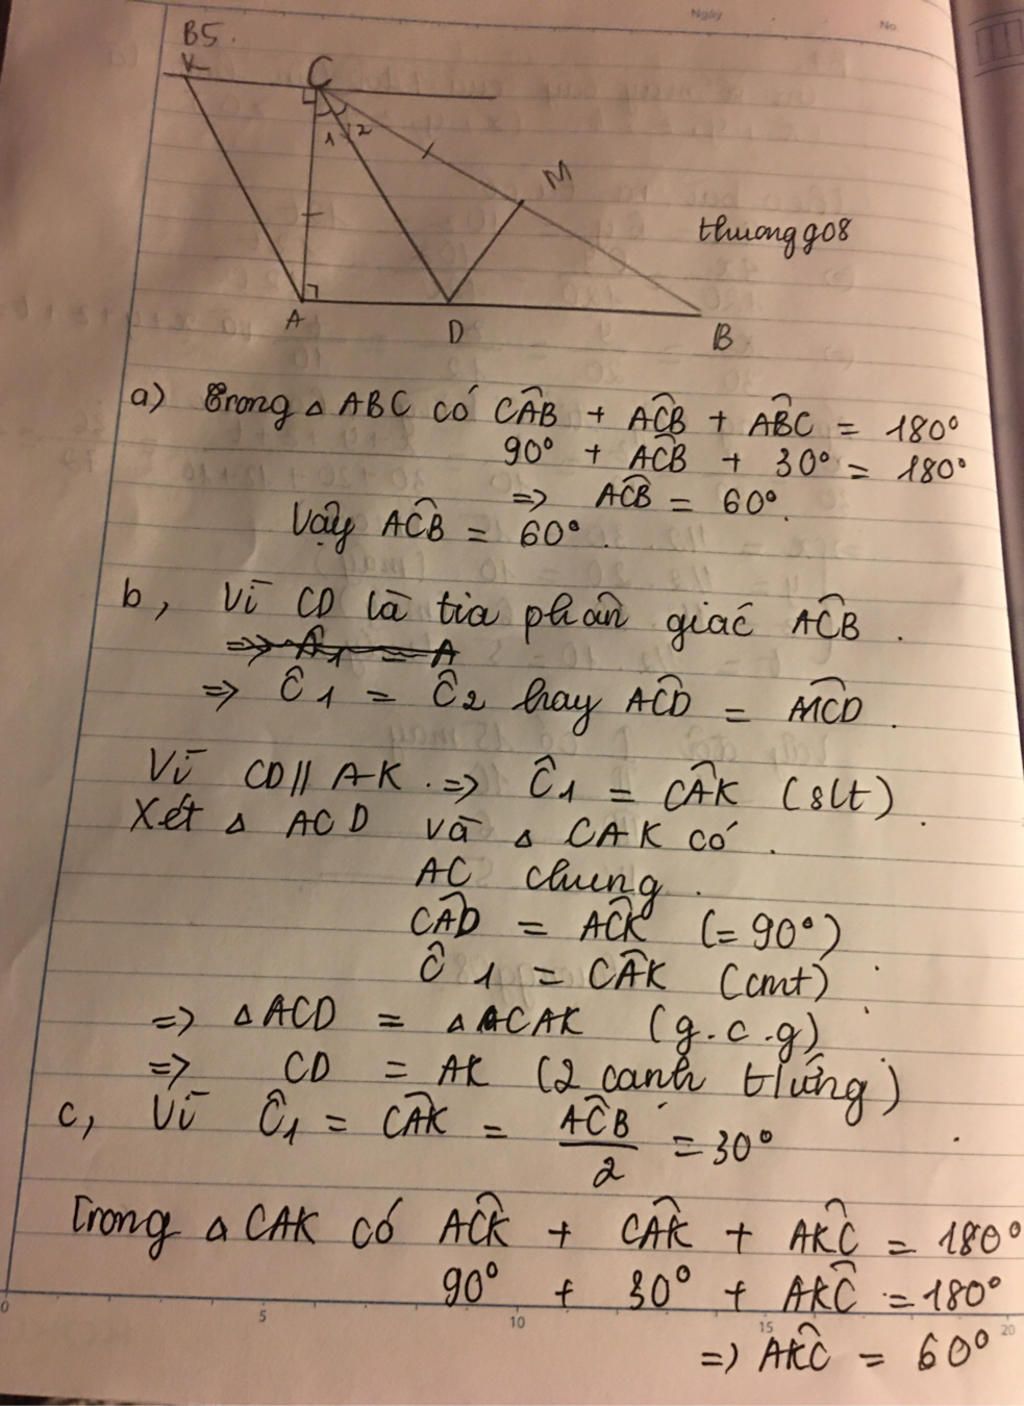 Ngày
No.
B5.
K
C
1 2
M
thuongg08
A
D
B
a) Trong △ ABC có CÂB + AĈB + AB̂C = 180°
90° + AĈB + 30° = 180°
=> AĈB = 60°.
Vậy AĈB = 60°.
b, Vì CD là tia phân giác AĈB.
=> Â1 = A
=> Ĉ1 = Ĉ2 hay AĈD = MĈD.
Vì CD // AK. => Ĉ1 = CÂK (slt)
Xét △ ACD và △ CAK có.
AC chung.
CÂD = AĈK (=90°)
Ĉ1 = CÂK (cmt)
=> △ACD = △CAK (g.c.g)
=> CD = AK (2 canh tứng)
c, Vì Ĉ1 = CÂK = AĈB / 2 = 30°
Trong △ CAK có AĈK + CÂK + AK̂C = 180°
90° + 30° + AK̂C = 180°
=> AK̂C = 60°
0 5 10 15 20